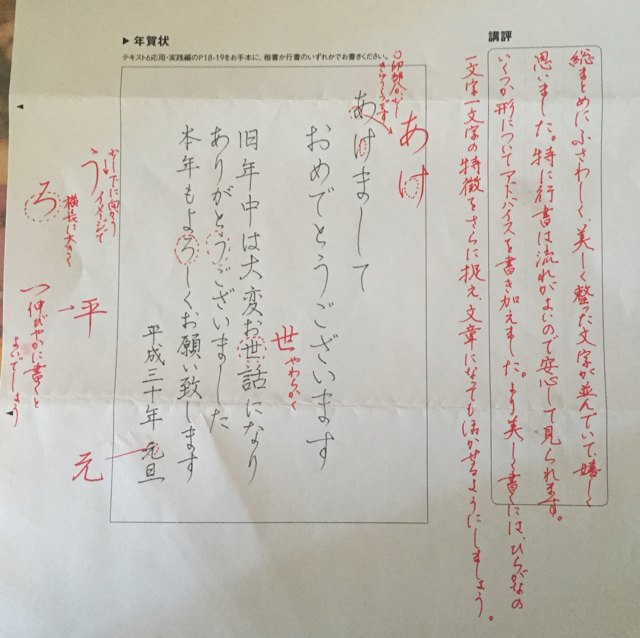 講評
総まとめにふさわしく、美しく整った文字が並んでいて、嬉しく
思いました。特に行書は流れがよいので安心して見られます。
いくつか形についてアドバイスを書き加えました。より美しく書くには、ひらがなの
一文字一文字の特徴をさらに捉え、文章になっても活かせるようにしましょう。
▶ 年賀状
テキスト6応用・実践編のP18-19をお手本に、楷書か行書のいずれかでお書きください。
あけ
あけまして
おめでとうございます
世 やわらかく
旧年中は大変お世話になり
ありがとうございました
本年もよろしくお願い致します
平成三十年 元旦
う
下に向かう
イメージで
ろ
横長に大きく
平
元
伸びやかに書くと
よいでしょう